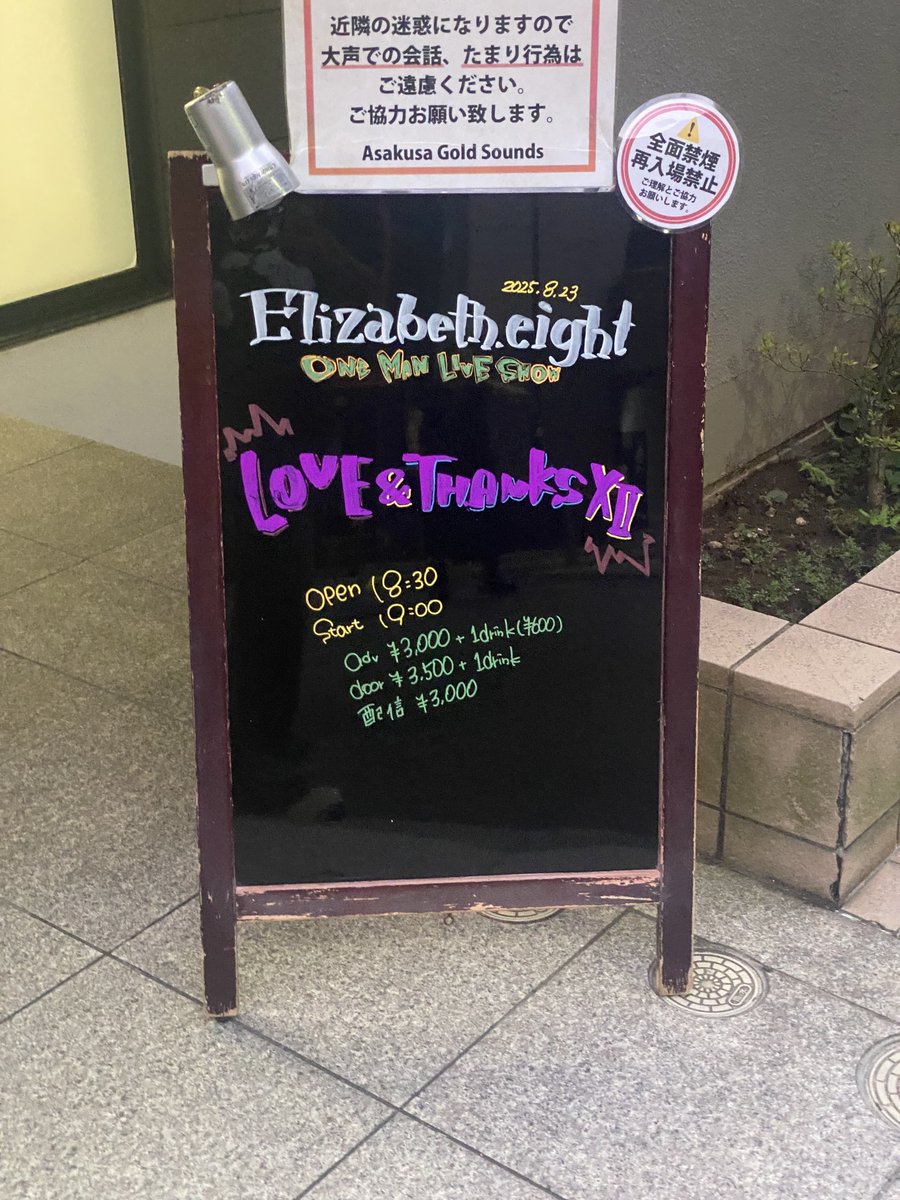 近隣の迷惑になりますので
大声での会話、たまり行為は
ご遠慮ください。
ご協力お願い致します。
Asakusa Gold Sounds
全面禁煙
再入場禁止
ご理解とご協力
お願いします。
2025.8.23
Elizabeth.eight
ONE MAN LIVE SHOW
LOVE & THANKS XII
Open 18:30
Start 19:00
adv ¥3,000 + 1drink (¥600)
door ¥3,500 + 1drink
配信 ¥3,000